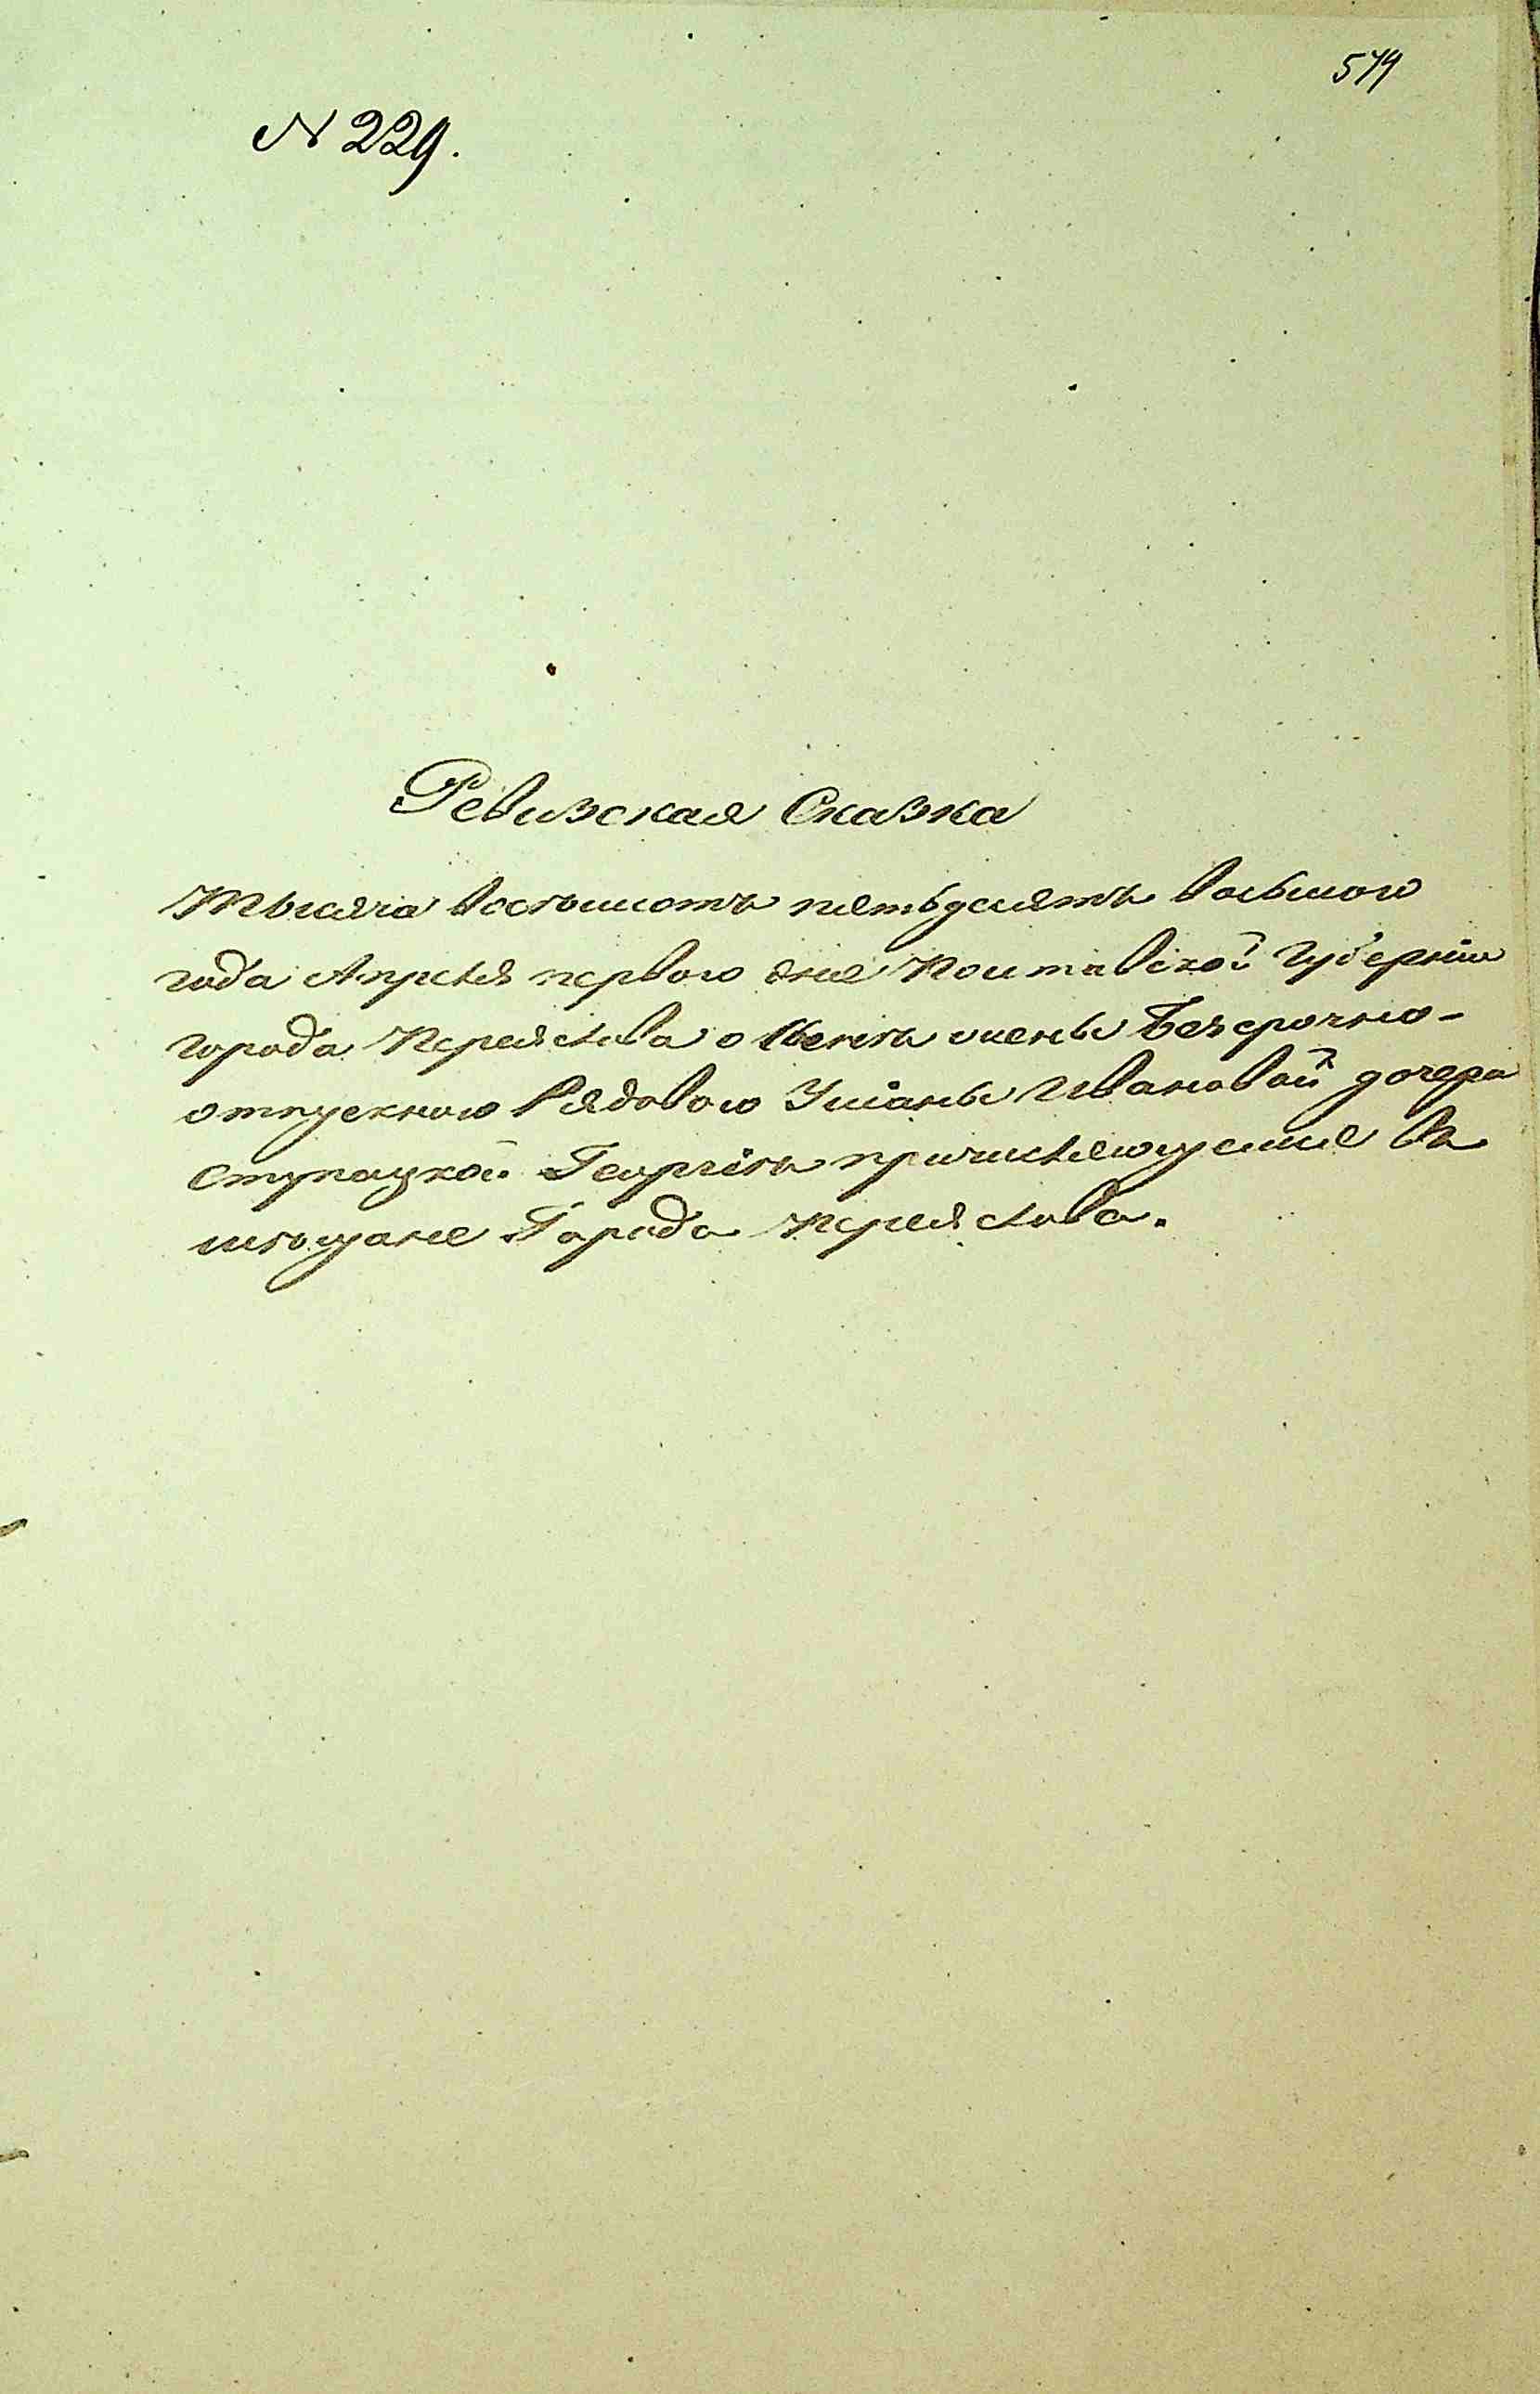 579
№ 229.
Ревизская Сказка
Тысяча восемьсотъ пятьдесятъ восьмого
года Апреля первого дня Полтавской Губерніи
города Переяслова о сынѣ жены безсрочно-
отпускного Рядового Ульяны Ивановой дочери
Ступацкой Георгіѣ причисляющемся въ
мѣщане Города Переяслова.